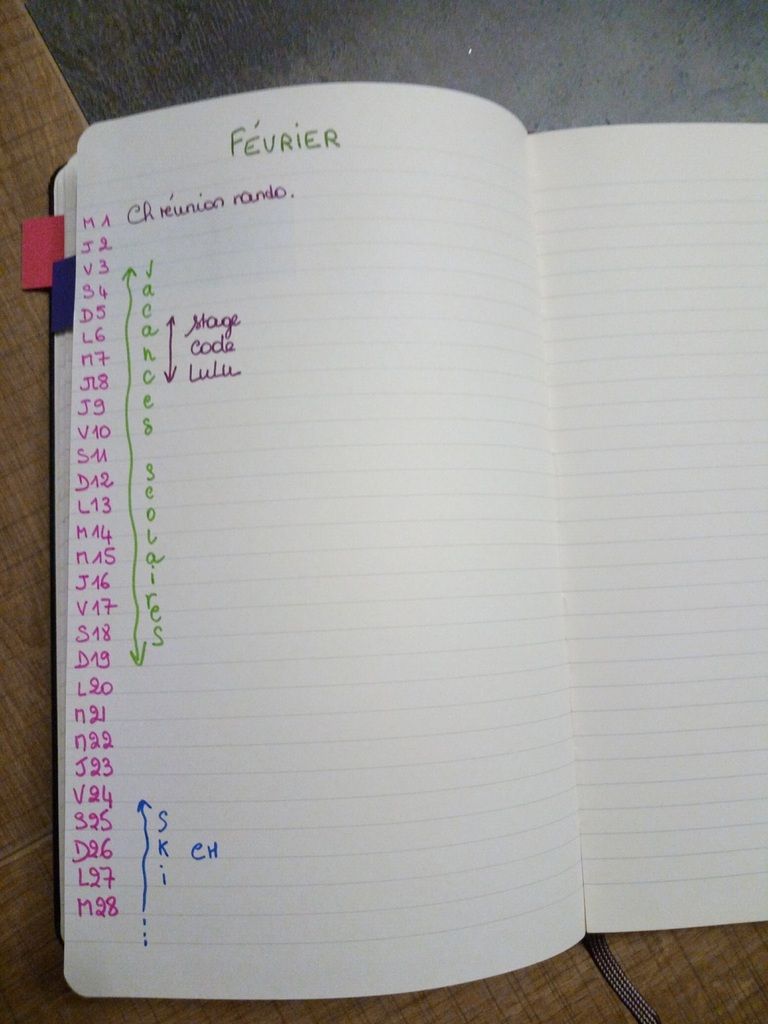 FÉVRIER
M1 CH réunion rando.
J2
V3
S4
D5
L6
M7
M8
J9
V10
S11
D12
L13
M14
M15
J16
V17
S18
D19
L20
M21
M22
J23
V24
S25
D26
L27
M28
vacances scolaires
stage
code
Lulu
Ski
CH